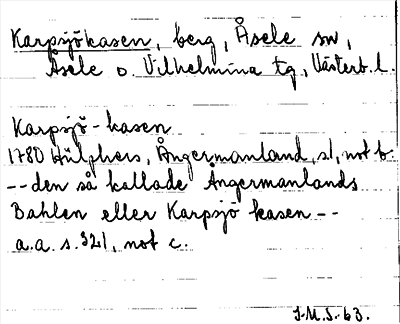 Karpsjökasen, berg, Åsele sn,
Åsele o Vilhelmina tg, Västerb. l.
Karpsjö-kasen
1780 Hülphers, Ångermanland, s. 1, not b.
--den så kallade Ångermanlands
Bahlen eller Karpsjö kasen--
a.a. s. 321, not c.
J.M.S. 63.